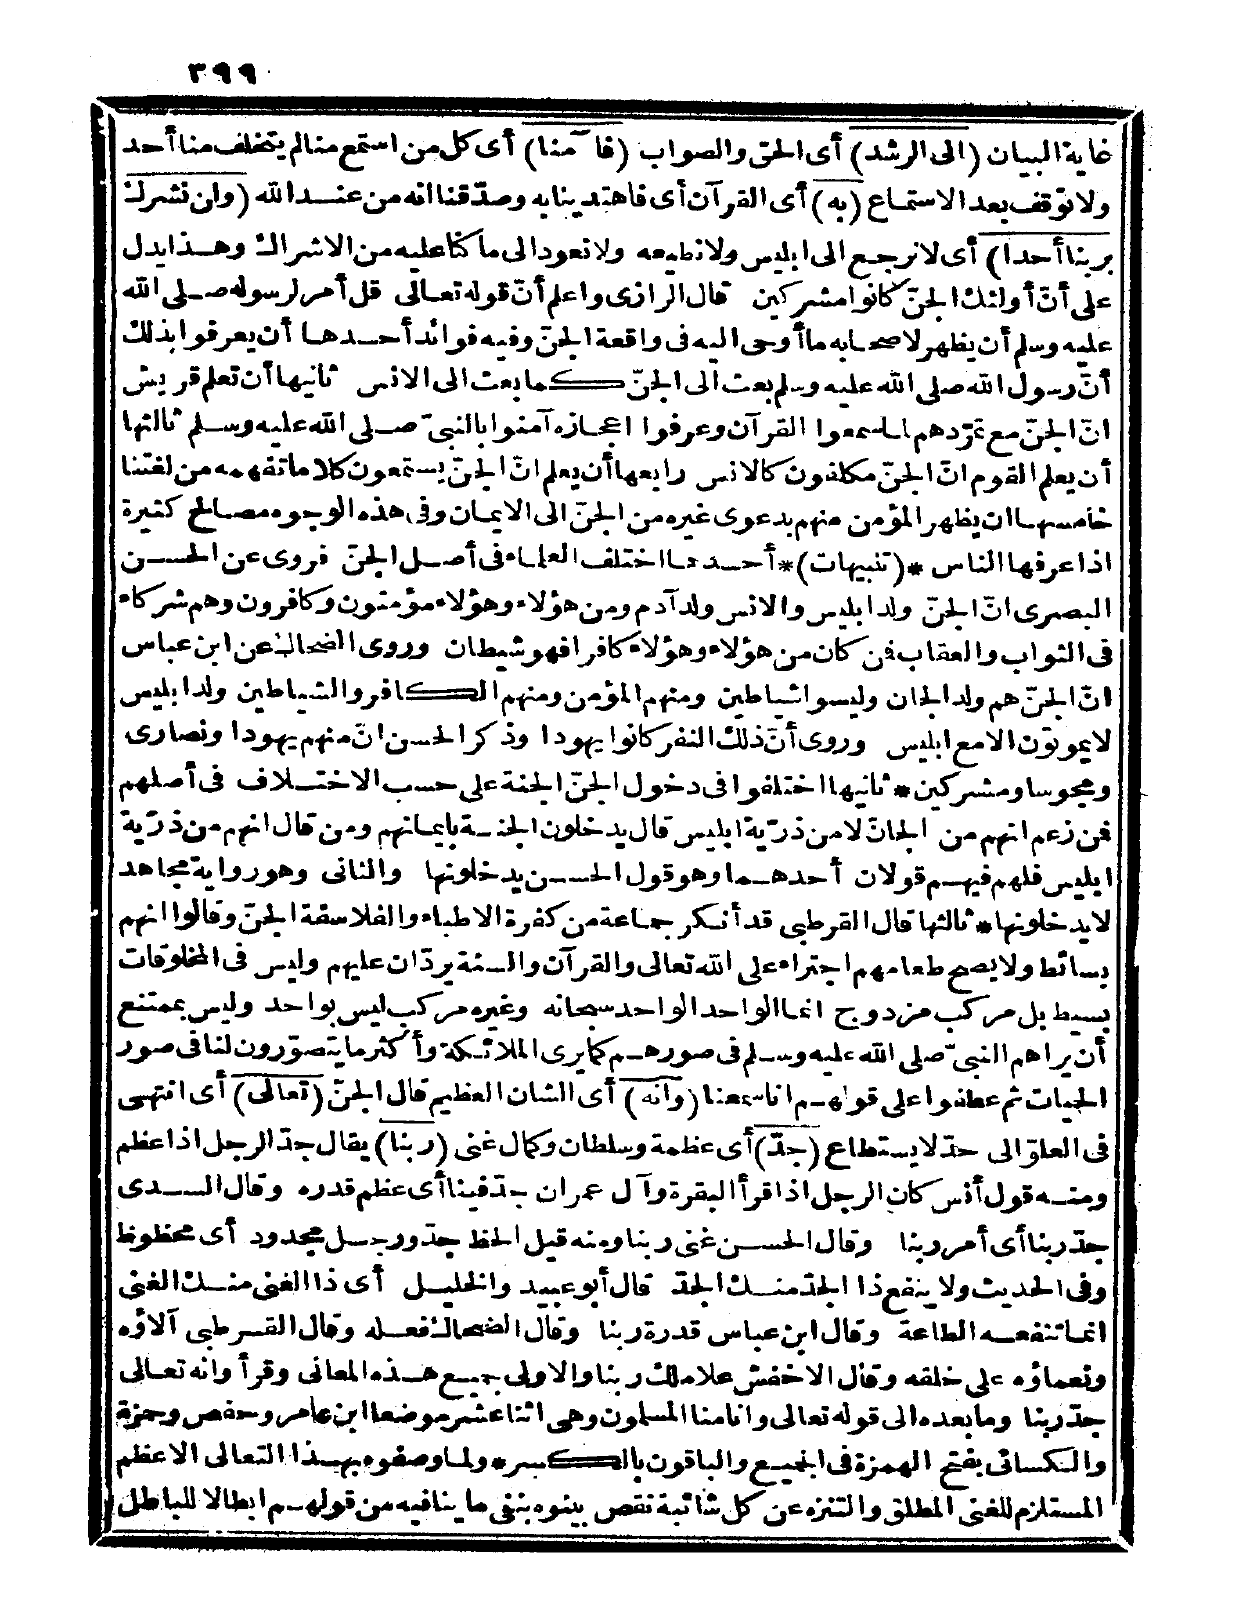 ٣٩٩
غاية البيان (الى الرشد) أى الحق والصواب (فآمنا) أى كل من استمع منا لم يتخلف منا أحد
ولا توقف بعد الاستماع (به) أى القرآن أى فاهتدينا به وصدّقنا انه من عند الله (وان نشرك
بربنا أحدا) أى لا نرجع الى ابليس ولا نطيعه ولا نعود الى ما كنا عليه من الاشراك وهذا يدل
على أنّ أولئك الجنّ كانوا مشركين قال الرازى واعلم أنّ قوله تعالى قل أمر لرسوله صلى الله
عليه وسلم أن يظهر لاصحابه ما أوحى اليه فى واقعة الجنّ وفيه فوائد أحدها أن يعرفوا بذلك
أنّ رسول الله صلى الله عليه وسلم بعث الى الجنّ كما بعث الى الانس ثانيها أن تعلم قريش
انّ الجنّ مع تمرّدهم لما سمعوا القرآن وعرفوا اعجازه آمنوا بالنبىّ صلى الله عليه وسلم ثالثها
أن يعلم القوم انّ الجنّ مكلفون كالانس رابعها أن يعلم انّ الجنّ يستمعون كلاما تفهمه من لغتنا
خامسها ان يظهر المؤمن منهم بدعوى غيره من الجنّ الى الايمان وفى هذه الوجوه مصالح كثيرة
اذا عرفها الناس *(تنبيهات)* أحدها اختلف العلماء فى أصل الجنّ فروى عن الحسن
البصرى انّ الجنّ ولد ابليس والانس ولد آدم ومن هؤلاء وهؤلاء مؤمنون وكافرون وهم شركاء
فى الثواب والعقاب فمن كان من هؤلاء وهؤلاء كافرا فهو شيطان وروى الضحاك عن ابن عباس
انّ الجنّ هم ولد الجان وليسوا شياطين ومنهم المؤمن ومنهم الكافر والشياطين ولد ابليس
لا يموتون الا مع ابليس وروى أنّ ذلك النفر كانوا يهودا وذكر الحسن انّ منهم يهودا ونصارى
ومجوسا ومشركين * ثانيها اختلفوا فى دخول الجنّ الجنة على حسب الاختلاف فى أصلهم
فمن زعم انهم من الجانّ لا من ذرّية ابليس قال يدخلون الجنة بايمانهم ومن قال انهم من ذرّية
ابليس فلهم فيهم قولان أحدهما وهو قول الحسن يدخلونها والثانى وهو رواية مجاهد
لا يدخلونها * ثالثها قال القرطبى قد أنكر جماعة من كفرة الاطباء والفلاسفة الجنّ وقالوا انهم
بسائط ولا يصح طعامهم اجتراء على الله تعالى والقرآن والسنة يردّان عليهم وليس فى المخلوقات
بسيط بل مركب مزدوج انما الواحد الواحد سبحانه وغيره مركب ليس بواحد وليس بممتنع
أن يراهم النبىّ صلى الله عليه وسلم فى صورهم كما يرى الملائكة وأكثر ما يتصوّرون لنا فى صور
الحيات ثم عطفوا على قولهم انا سمعنا (وانه) أى الشان العظيم قال الجنّ (تعالى) أى انتهى
فى العلوّ الى حدّ لا يستطاع (جدّ) أى عظمة وسلطان وكمال غنى (ربنا) يقال جدّ الرجل اذا عظم
ومنه قول أنس كان الرجل اذا قرأ البقرة وآل عمران جدّ فينا أى عظم قدره وقال السدى
جدّ ربنا أى أمر ربنا وقال الحسن غنى ربنا ومنه قيل الحظ جدّ ورجل مجدود أى محظوظ
وفى الحديث ولا ينفع ذا الجدّ منك الجدّ قال أبو عبيد والخليل أى ذا الغنى منك الغنى
انما تنفعه الطاعة وقال ابن عباس قدرة ربنا وقال الضحاك فعله وقال القرطبى آلاؤه
ونعماؤه على خلقه وقال الاخفش علا ملك ربنا والاولى جميع هذه المعانى وقرأ وانه تعالى
جدّ ربنا وما بعده الى قوله تعالى وانا منا المسلمون وهى اثنا عشر موضعا ابن عامر وحفص وحمزة
والكسائى بفتح الهمزة فى الجميع والباقون بالكسر * ولما وصفوه بهذا التعالى الاعظم
المستلزم للغنى المطلق والتنزه عن كل شائبة نقص بينوه بنفى ما ينافيه من قولهم ابطالا للباطل